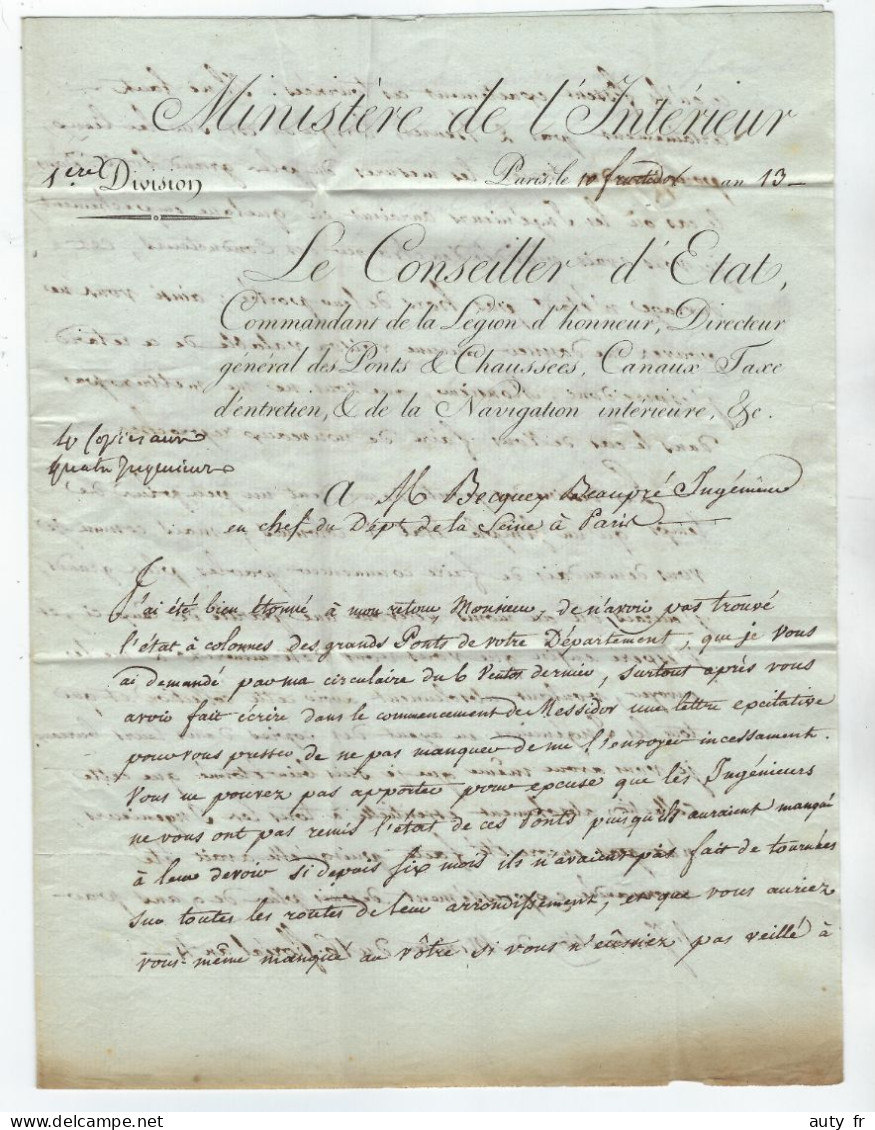 Ministère de l'Intérieur
1ère Division
Paris, le 10 fructidor an 13
Le Conseiller d'Etat,
Commandant de la Légion d'honneur, Directeur
général des Ponts & Chaussées, Canaux Taxe
d'entretien, & de la Navigation intérieure, &c.
Copies aux
quatre Ingénieurs
A M. Becquey Beaupré Ingénieur
en chef du Dépt. de la Seine à Paris.
J'ai été bien étonné à mon retour Monsieur, de n'avoir pas trouvé
l'état à colonnes des grands Ponts de votre Département, que je vous
ai demandé par ma circulaire du 6 Ventose dernier, surtout après vous
avoir fait écrire dans le commencement de Messidor une lettre excitative
pour vous presser de ne pas manquer de me l'envoyer incessament.
Vous ne pouvez pas apporter pour excuse que les Ingénieurs
ne vous ont pas remis l'état de ces Ponts puisqu'ils auraient manqué
à leur devoir si depuis six mois ils n'avaient pas fait de tournées
sur toutes les routes de leur arrondissement, et que vous auriez
vous-même manqué au vôtre si vous n'eûssiez pas veillé à
delcampe.net
auty_fr